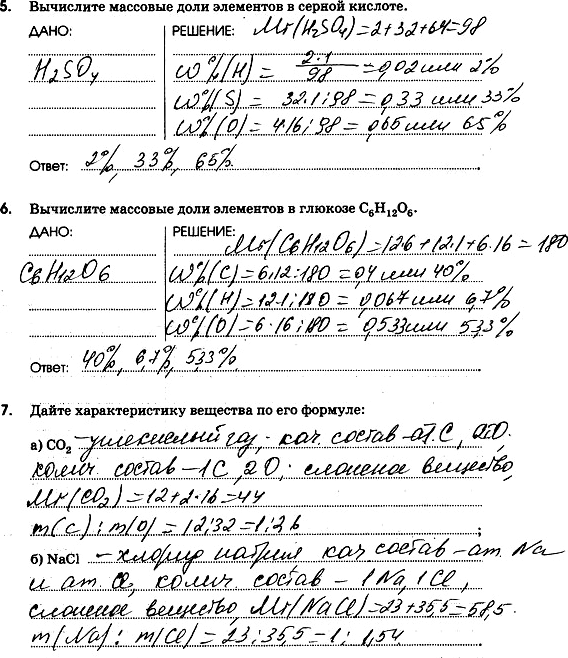 5. Вычислите массовые доли элементов в серной кислоте.
ДАНО: РЕШЕНИЕ: Mr(H₂SO₄)=2+32+64=98
H₂SO₄ W%(H) = 2·1/98 = 0,02 или 2%
W%(S) = 32·1:98 = 0,33 или 33%
W%(O) = 4·16:98 = 0,65 или 65%
Ответ: 2%, 33%, 65%
6. Вычислите массовые доли элементов в глюкозе C₆H₁₂O₆.
ДАНО: РЕШЕНИЕ:
Mr(C6H12O6)=12·6+12·1+6·16=180
C6H12O6 W%(C)=6·12:180=0,4 или 40%
W%(H)=12·1:180=0,067 или 6,7%
W%(O)=6·16:180=0,533 или 53,3%
Ответ: 40%, 6,7%, 53,3%
7. Дайте характеристику вещества по его формуле:
а) CO₂ – углекислый газ; кач. состав – ат. C, ат. O.
колич. состав – 1C, 2O; сложное вещество,
Mr(CO₂)=12+2·16=44
m(C):m(O)=12:32=1:2,6 ;
б) NaCl – хлорид натрия, кач состав – ат. Na
и ат. Cl, колич. состав – 1Na, 1Cl,
сложное вещество, Mr(NaCl)=23+35,5=58,5.
m(Na):m(Cl)=23:35,5=1:1,54